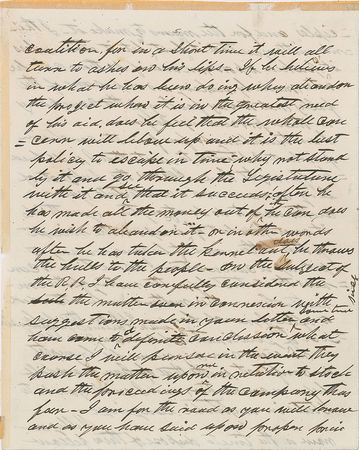 coalition, for in a short time it will all
turn to ashes on his lips - If he believes
in what he has been doing why abandon
the project when it is in the greatest need
of his aid, does he feel that the whole con
= cern will blow up and it is the best
policy to escape in time - why not stand
by it and go through the Legislature
with it and see that it succeeds, after he
has made all the money out of it he can does
he wish to abandon it - or in other words
after he has taken the kernel out, he throws
the hulls to the people - On the subject of
the R.R. I have carefully considered the
the matter even in connexion with
suggestions made in your letter and
have come to a definite conclusion what
course I will pursue in the event they
push the matter upon me in relation to stock
and the proceedings of the company thus
far - I am for the road as you well know
and as you have said upon proper prin